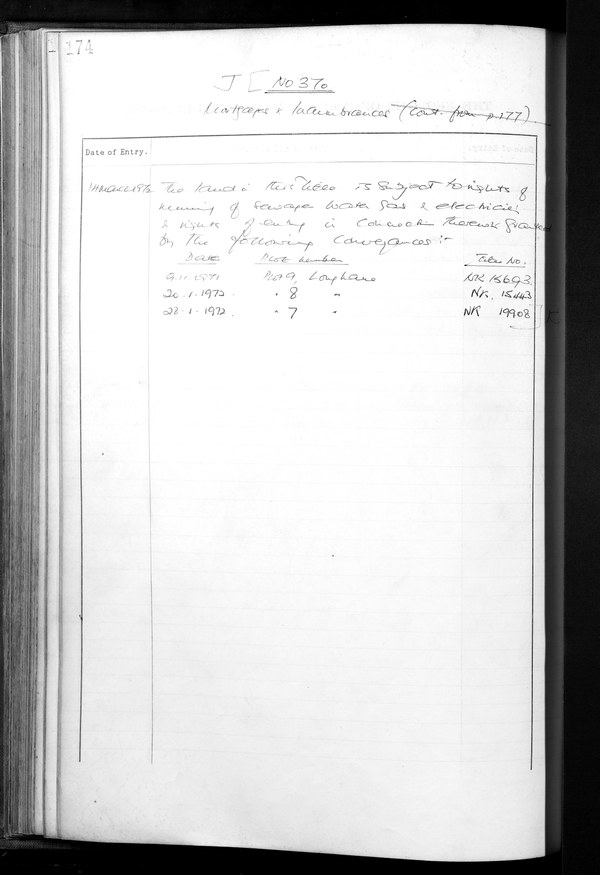 174
J [ NO 370
Mortgages & Incumbrances (Cont. from p 177)
Date of Entry.
The Land in this Title is Subject to rights of
running of Sewage Water Gas & electricity
& rights of entry in Connection therewith granted
by the following Conveyances :-
Date Plot number Title No.
1971 Plot 9, Longlane NK 15693
20.1.1972. " 8 " NK. 15443
28.1.1972. " 7 " NK 19908